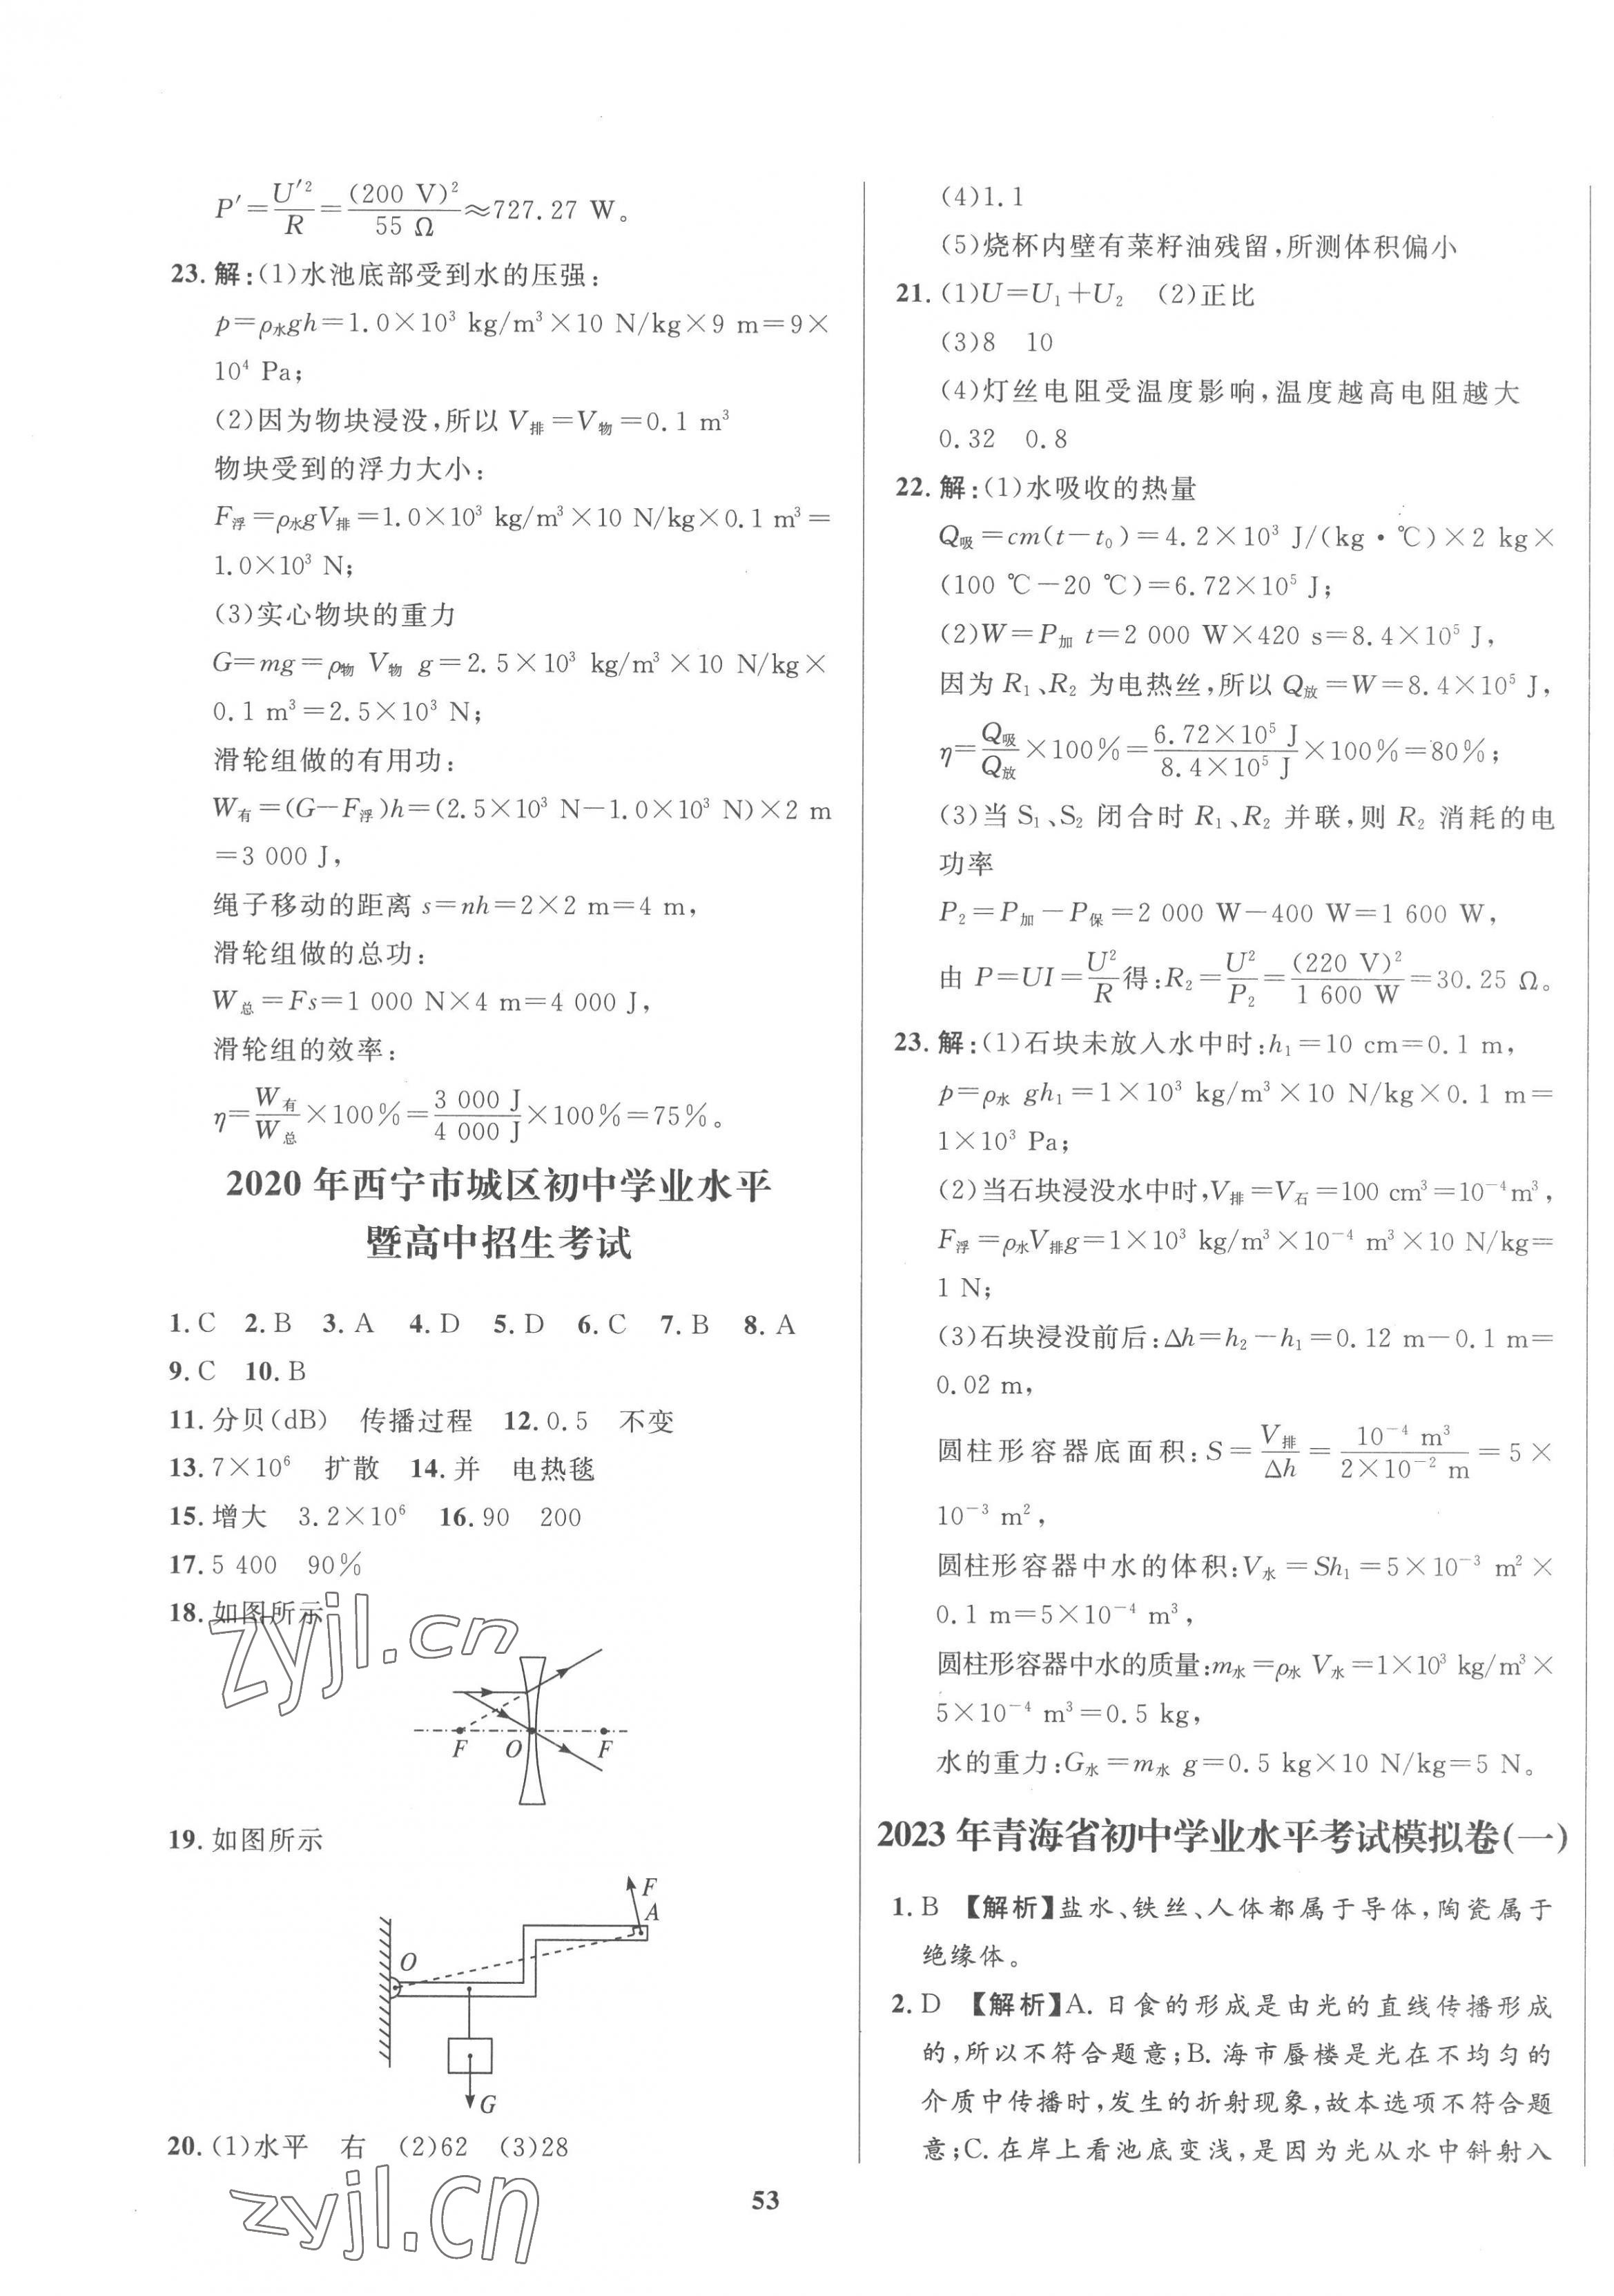 P′=U′²/R=(200 V)²/55 Ω≈727.27 W。
23.解:(1)水池底部受到水的压强:
p=ρ水gh=1.0×10³ kg/m³×10 N/kg×9 m=9×
10⁴ Pa;
(2)因为物块浸没,所以V排=V物=0.1 m³
物块受到的浮力大小:
F浮=ρ水gV排=1.0×10³ kg/m³×10 N/kg×0.1 m³=
1.0×10³ N;
(3)实心物块的重力
G=mg=ρ物 V物 g=2.5×10³ kg/m³×10 N/kg×
0.1 m³=2.5×10³ N;
滑轮组做的有用功:
W有=(G−F浮)h=(2.5×10³ N−1.0×10³ N)×2 m
=3 000 J,
绳子移动的距离 s=nh=2×2 m=4 m,
滑轮组做的总功:
W总=Fs=1 000 N×4 m=4 000 J,
滑轮组的效率:
η=W有/W总×100%=3 000 J/4 000 J×100%=75%。
2020 年西宁市城区初中学业水平
暨高中招生考试
1.C 2.B 3.A 4.D 5.D 6.C 7.B 8.A
9.C 10.B
11.分贝(dB) 传播过程 12.0.5 不变
13.7×10⁶ 扩散 14.并 电热毯
15.增大 3.2×10⁶ 16.90 200
17.5 400 90%
18.如图所示
zyjl.cn
F O F
19.如图所示
F
A
O
G
20.(1)水平 右 (2)62 (3)28
zyjl.cn
(4)1.1
(5)烧杯内壁有菜籽油残留,所测体积偏小
21.(1)U=U₁+U₂ (2)正比
(3)8 10
(4)灯丝电阻受温度影响,温度越高电阻越大
0.32 0.8
22.解:(1)水吸收的热量
Q吸=cm(t−t₀)=4.2×10³ J/(kg·℃)×2 kg×
(100 ℃−20 ℃)=6.72×10⁵ J;
(2)W=P加 t=2 000 W×420 s=8.4×10⁵ J,
因为 R₁、R₂ 为电热丝,所以 Q放=W=8.4×10⁵ J,
η=Q吸/Q放×100%=6.72×10⁵ J/8.4×10⁵ J×100%=80%;
(3)当 S₁、S₂ 闭合时 R₁、R₂ 并联,则 R₂ 消耗的电
功率
P₂=P加−P保=2 000 W−400 W=1 600 W,
由 P=UI=U²/R得:R₂=U²/P₂=(220 V)²/1 600 W=30.25 Ω。
23.解:(1)石块未放入水中时:h₁=10 cm=0.1 m,
p=ρ水 gh₁=1×10³ kg/m³×10 N/kg×0.1 m=
1×10³ Pa;
(2)当石块浸没水中时,V排=V石=100 cm³=10⁻⁴m³,
F浮=ρ水V排g=1×10³ kg/m³×10⁻⁴ m³×10 N/kg=
1 N;
(3)石块浸没前后:Δh=h₂−h₁=0.12 m−0.1 m=
0.02 m,
圆柱形容器底面积:S=V排/Δh=10⁻⁴ m³/2×10⁻² m=5×
10⁻³ m²,
圆柱形容器中水的体积:V水=Sh₁=5×10⁻³ m²×
0.1 m=5×10⁻⁴ m³,
圆柱形容器中水的质量:m水=ρ水 V水=1×10³ kg/m³×
5×10⁻⁴ m³=0.5 kg,
水的重力:G水=m水 g=0.5 kg×10 N/kg=5 N。
2023 年青海省初中学业水平考试模拟卷(一)
1.B 【解析】盐水、铁丝、人体都属于导体,陶瓷属于
绝缘体。
2.D 【解析】A.日食的形成是由光的直线传播形成
的,所以不符合题意;B.海市蜃楼是光在不均匀的
介质中传播时,发生的折射现象,故本选项不符合题
意;C.在岸上看池底变浅,是因为光从水中斜射入
53